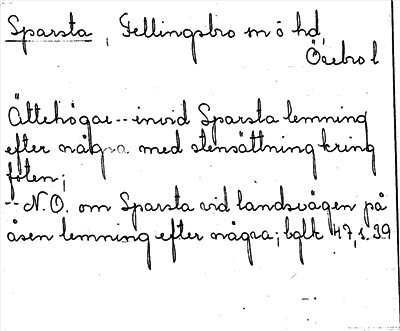 Sparsta, Fellingsbro sn ö hd,
Örebro l
Ättehögar -- invid Sparsta lemning
efter några med stensättning kring
foten;
-- N.O. om Sparsta vid landsvägen på
åsen lemning efter några; hglt 47, s. 39